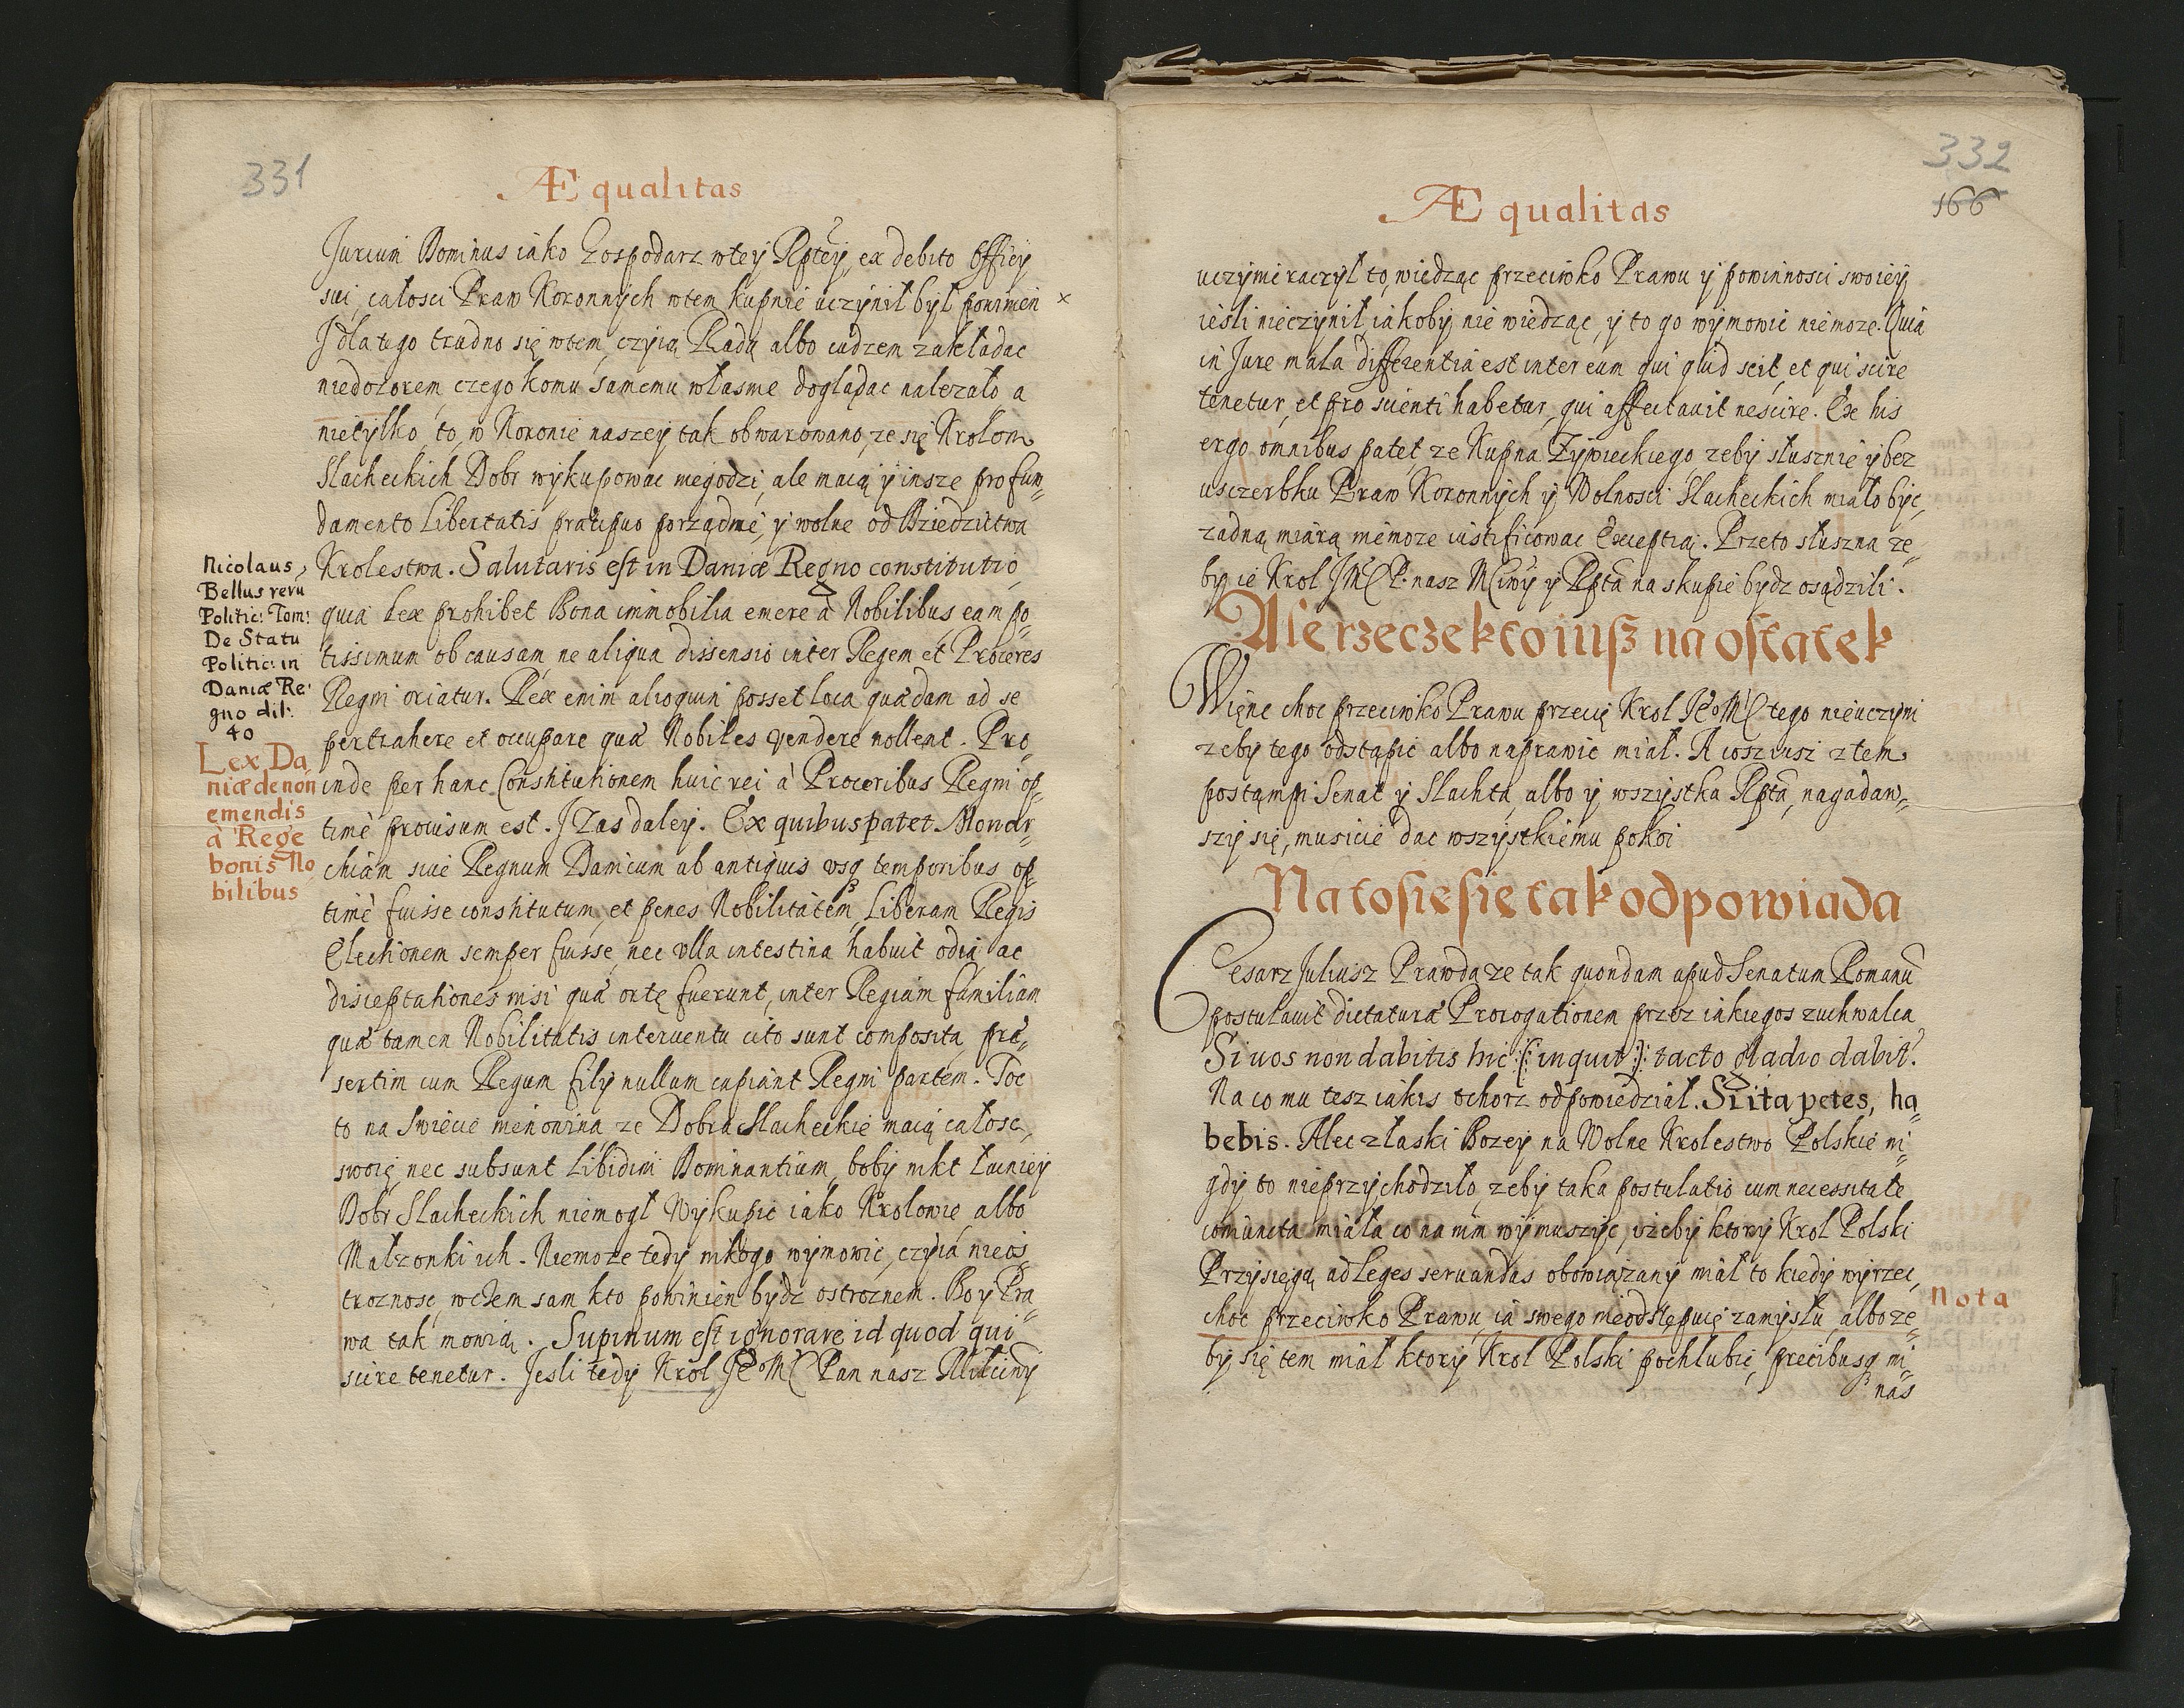 331
Æqualitas
Jurium Dominus iako Gospodarz wtey Rptey, ex debito Officij
sui, całosci Praw Koronnych wtem kupnie uczynił był powinien ×
J dla tego trudno się wtem, czyią Radą albo cudzem zakładac
niedozorem, czego komu samemu własnie doglądac nalezało, a
nietylko to, w Koronie naszey tak obwarowano, ze się Krolom
Slacheckich Dobr wykupowac niegodzi, ale maią y insze pro fun„
damento Libertatis præcipuo porządnie, y wolne od Dziedzictwa
Krolestwa. Salutaris est in Daniæ Regno constitutio,
quia Lex prohibet Bona immobilia emere à Nobilibus eam po„
tissimum ob causam ne aliqua dissensio inter Regem et Proceres
Regni oriatur. Rex enim alioquin posset loca quædam ad se
pertrahere et occupare quæ Nobiles vendere nollent. Pro„
inde per hanc Constitutionem huic rei à Proceribus Regni op„
timè provisum est. J Zas daley. Ex quibus patet Monar„
chiam siue Regnum Danicum ab antiquis vsq temporibus op„
timè fuisse constitutum, et penes Nobilitatem, Liberam Regis
Electionem semper fuisse, nec vlla intestina habuit odia ac
disceptationes nisi quæ ortę fuerunt, inter Regiam familiam
quæ tamen Nobilitatis interuentu cito sunt composita, præ„
sertim cum Regum filij nullam capiant Regni partem. Toc
to na swiecie nienowina ze Dobra Slacheckie maią całosc,
swoię, nec subsunt Libidini Dominantium, boby nikt łacniey
Dobr Slacheckich niemogł Wykupic iako Krolowie, albo
Małzonki ich. Niemoze tedy nikogo wymowic, czyia nieos„
troznosc, wczem sam kto powinien bydz ostroznem. Bo y Pra„
wa tak mowią. Supinum est ignorare id quod qui
scire tenetur. Jesli tedy Krol JeoMC Pan nasz Miłciwy
Nicolaus
Bellus reru
Politic: Tom:
De Statu
Politic: in
Daniæ Re:
gno dil:
40
Lex Da
niæ de non
emendis
à Rege
bonis No
bilibus
332
166
Æqualitas
uczynic raczył to, wiedząc przeciwko Prawu y powinnosci swoiey,
iesli nieczynił, iakoby nie wiedząc, y to go wymowic niemoze. Quia
in Jure mala differentia est inter eum qui quid scit, et qui scire
tenetur, et pro scienti habetur, qui affectauit nescire. Ex his
ergo omnibus patet ze Kupna Zywieckiego, zeby słusznie y bez
usczerbku Praw Koronnych y Wolnosci Slacheckich miało byc,
zadną miarą niemoze iustificowac Exceptią. Przeto słuszna ze„
by ie Krol JMC P. nasz Mciwy y Rpta na skupie bydz osądzili.
Ale rzecze kto iusz na ostatek
Więne choc przeciwko Prawu przecię Krol JeoMC tego nieuczyni
zeby tego odstąpic albo naprawic miał. A cosz iusz ztem
postąmpi Senat y Slachta, albo y wszystka Rpta, nagadaw„
szy się, musicie dac wszystkiemu pokoi
Na to sie się tak odpowiada
Cesarz Juliusz Prawda ze tak quondam apud Senatum Romanu
postulauit dictaturæ Prorogationem przez iakiegos zuchwalca
Si uos non dabitis hic (: inquit :) tacto gladio dabit.
Na co mu tesz iakis tchorz odpowiedział. Si ita petes, ha„
bebis. Alec złaski Bozey na Wolne Krolestwo Polskie ni„
gdy to nieprzychodziło, zeby taka postulatio cum necessitate
coniuncta miała co na nim wymuszyc, izeby ktory Krol Polski
Przysięgą ad Leges seruandas obowiązany miał to kiedy wyrzec,
choc przeciwko Prawu, ia swego nieodstępuię zamysłu, albo ze„
by się tem miał ktory Krol Polski pochlubic, precibusq mi„
nas
Nota